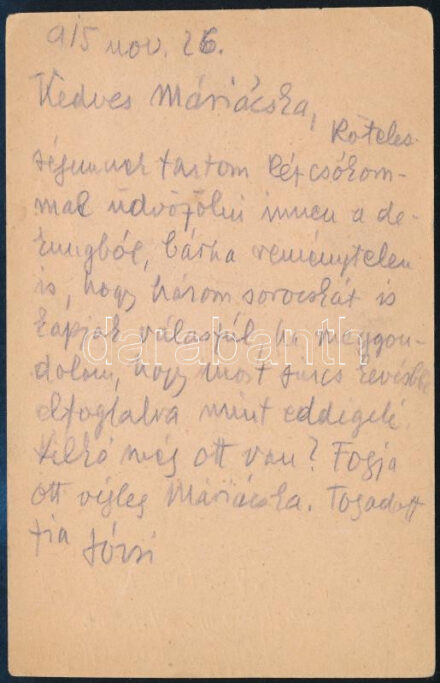 915 nov. 26.
Kedves Máriácska,
Köteles-
ségemnek tartom kézcsókom-
mal üdvözölni innen a de-
kungból, bárha reménytelen
is, hogy három sorocskát is
kapjak válaszúl.
dolom, hogy most sincs kevésbbé
elfoglalva mint eddigelé.
még ott van? Fogja
ott végleg Máriácska. Fogadott
fia Józsi
darabanth